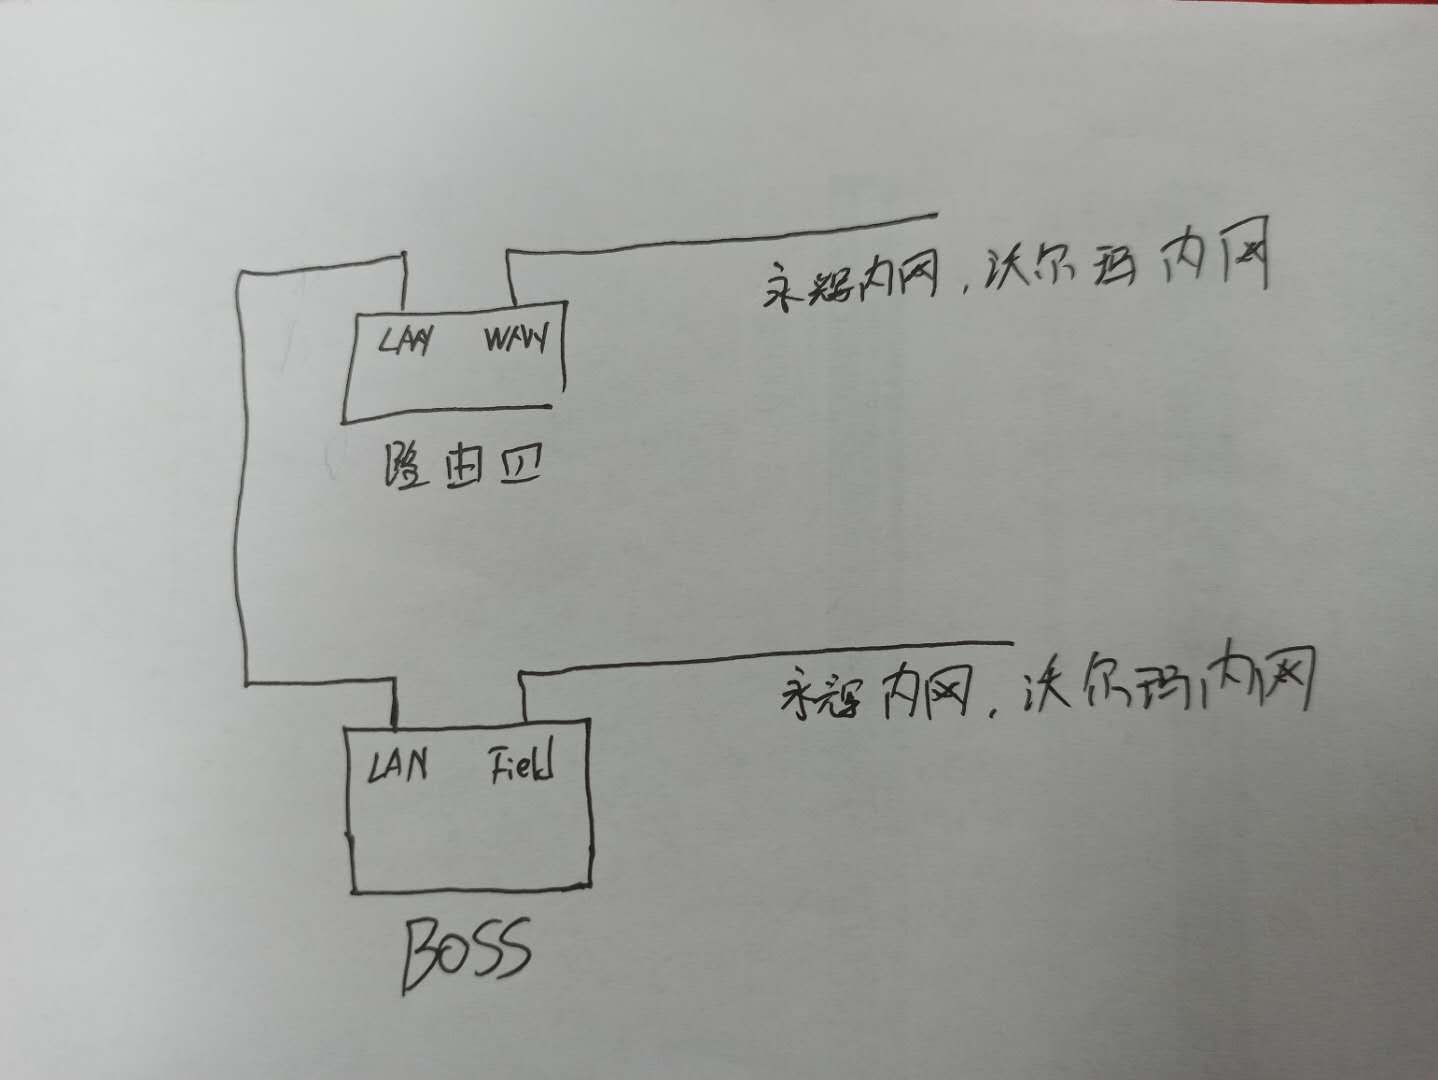 永辉内网，沃尔玛内网
LAN WAN
路由四
永辉内网，沃尔玛内网
LAN Field
BOSS